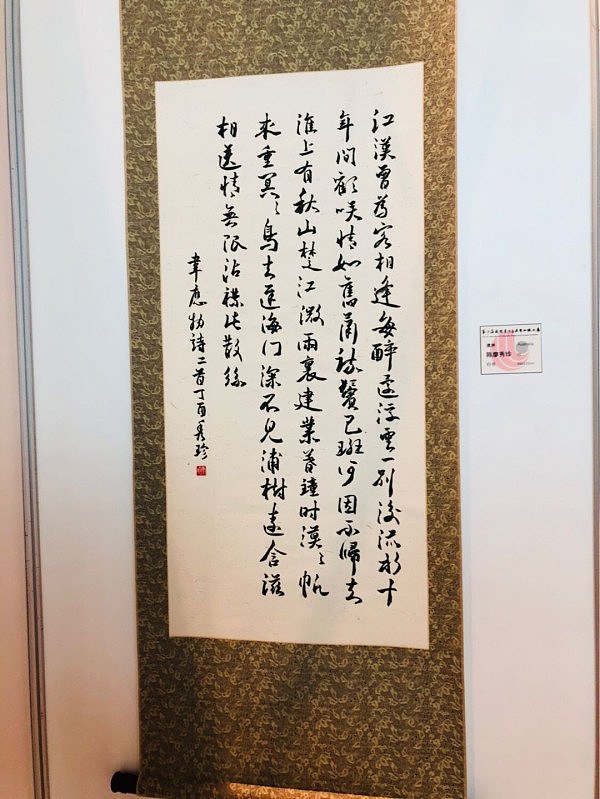 江漢曾為客相逢每醉還浮雲一別後流水十
年間歡笑情如舊蕭疏鬢已斑何因不歸去
淮上有秋山楚江微雨裏建業暮鐘時漠々帆
來重冥々鳥去遲海門深不見浦樹遠含滋
相送情無限沾襟比散絲
韋應物詩二首丁酉秀珍